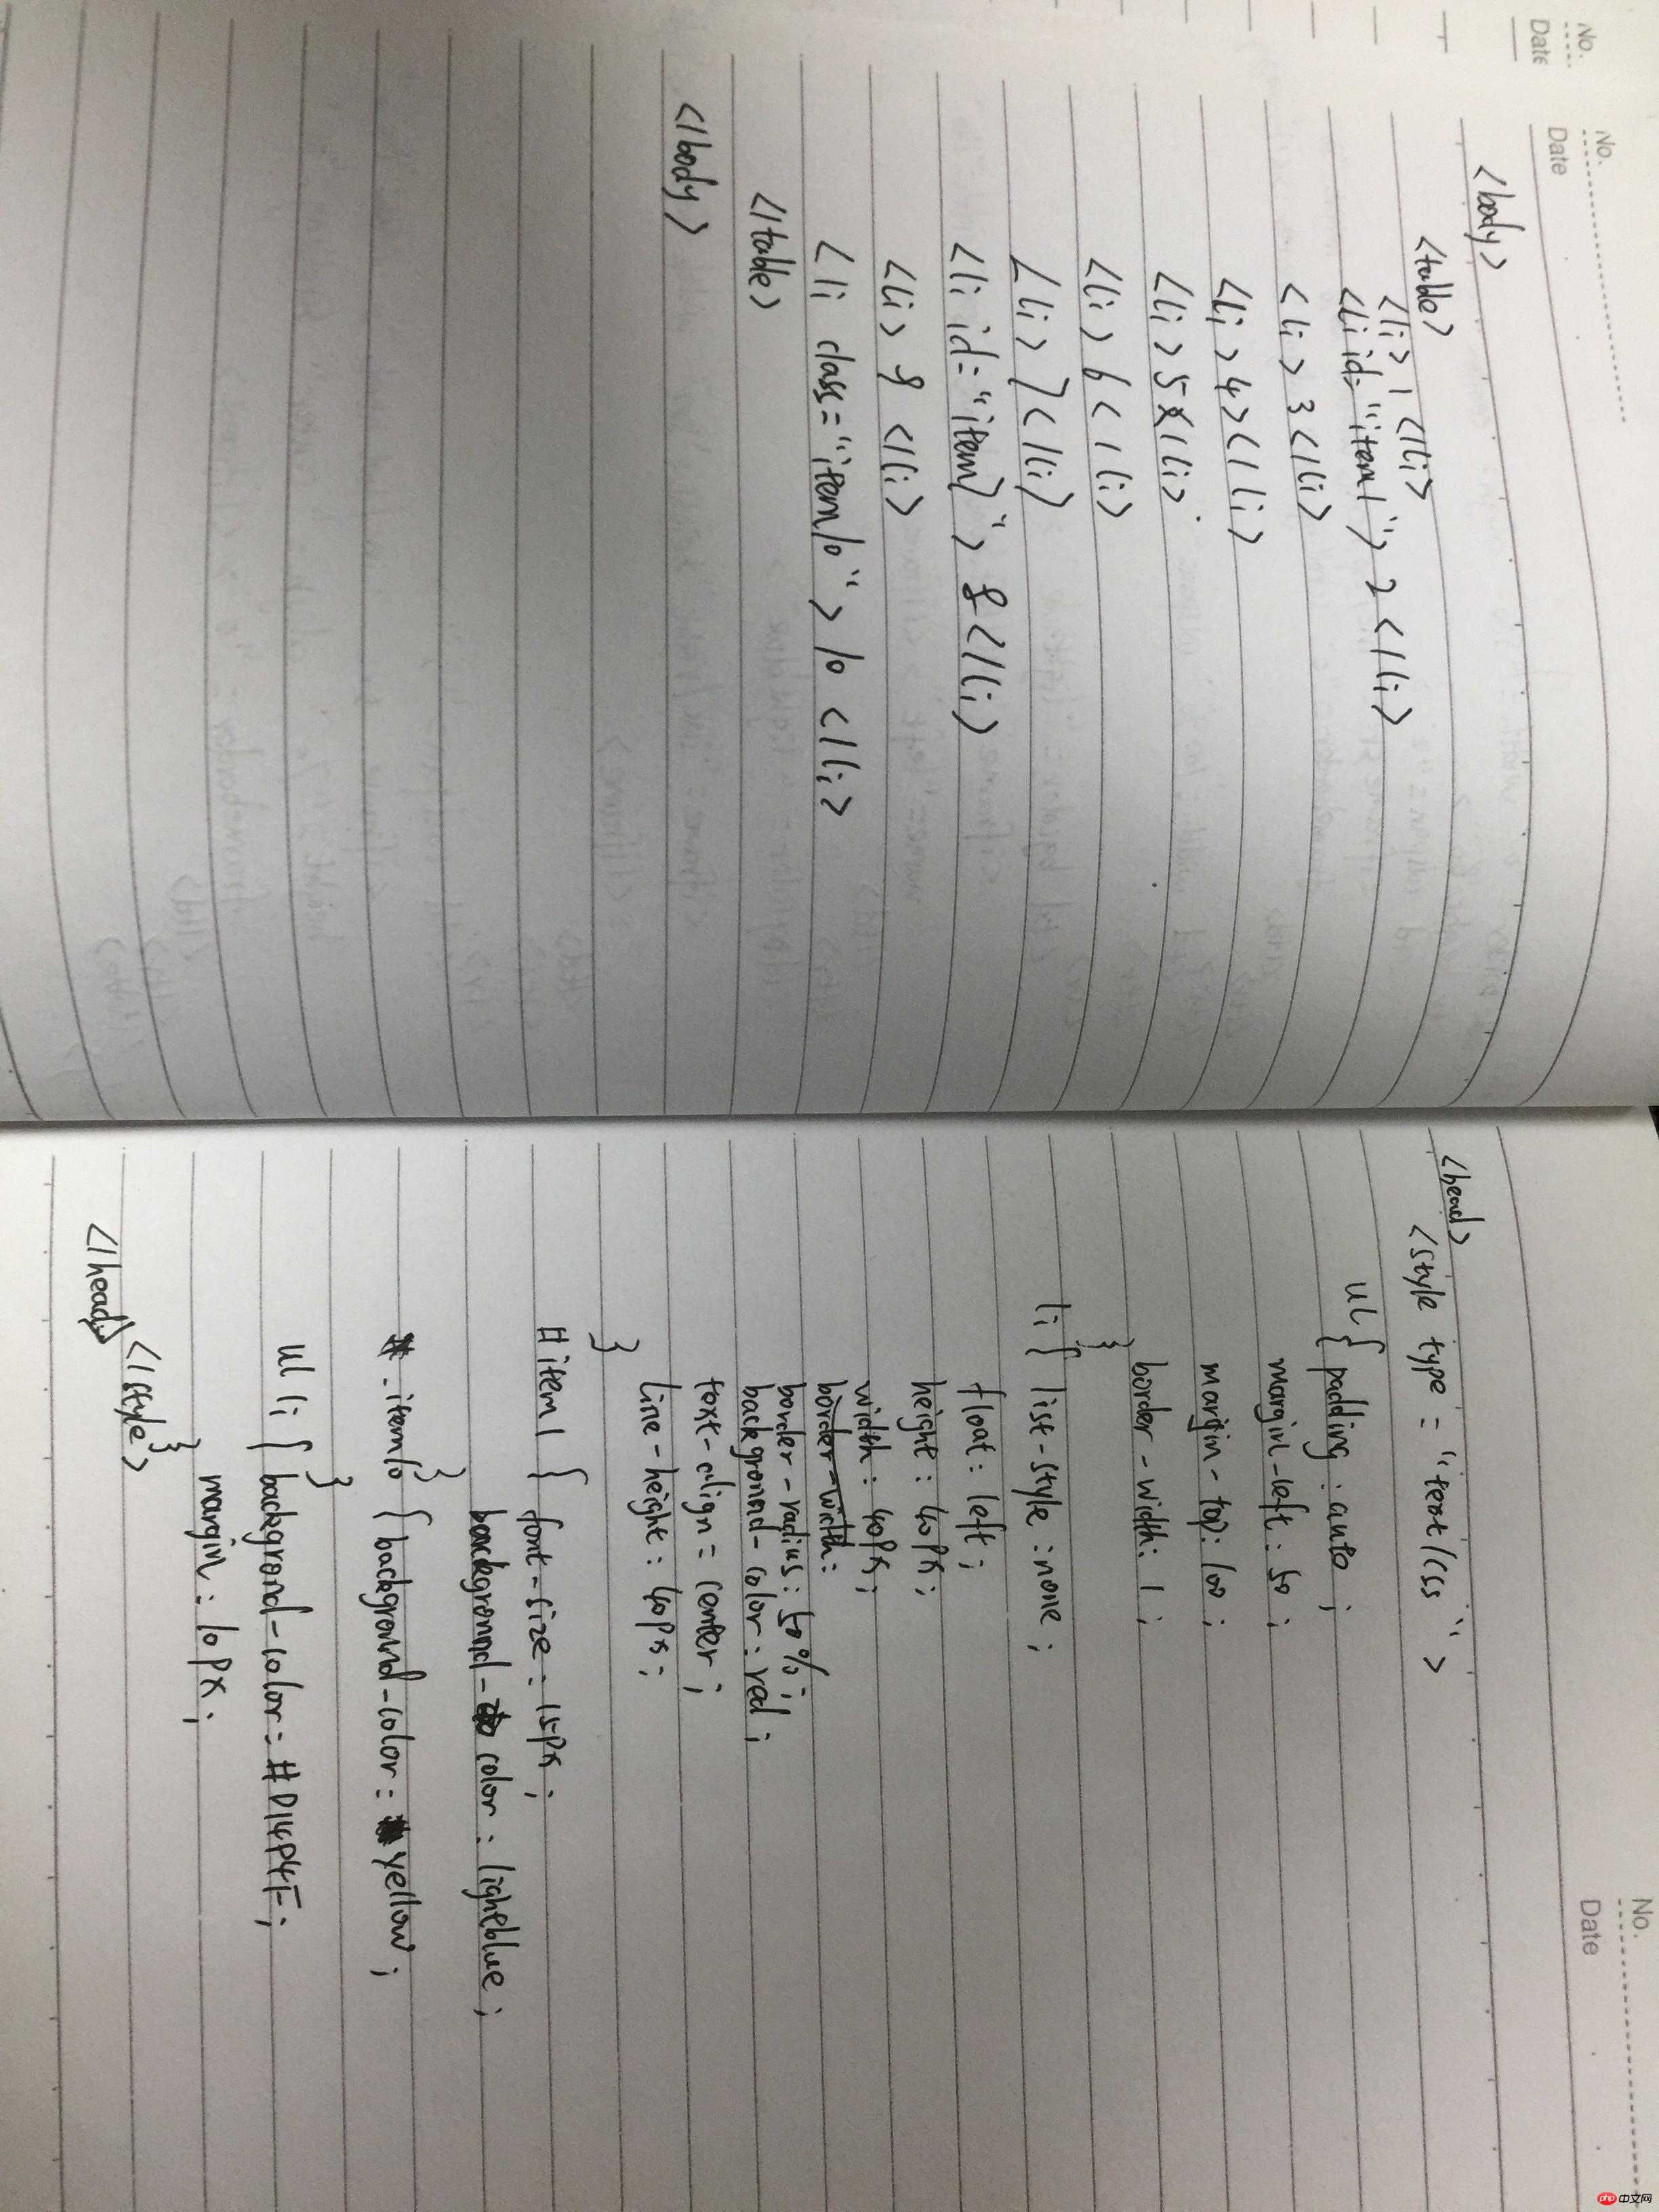 No.
Date
No.
Date
<body>
<table>
<li> 1 </li>
<li id="item1"> 2 </li>
<li> 3 </li>
<li> 4> </li>
<li> 5 </li>
<li> 6 </li>
<li> 7 </li>
<li id="item7"> 8 </li>
<li> 9 </li>
<li class="item10"> 10 </li>
</table>
</body>
No.
Date
<head>
<style type="text/css">
ul { padding: auto;
margin-left: 50;
margin-top: 100;
border-width: 1;
}
li { list-style: none;
float: left;
height: 40px;
width: 40px;
border-width:
border-radius: 50%;
background-color: red;
text-align = center;
line-height: 40px;
}
#item1 { font-size: 15px;
background-color: lightblue;
}
.item10 { background-color: yellow;
}
ul li { background-color: #D14D4F;
margin: 10px;
}
</style>
</head>
php 中文网